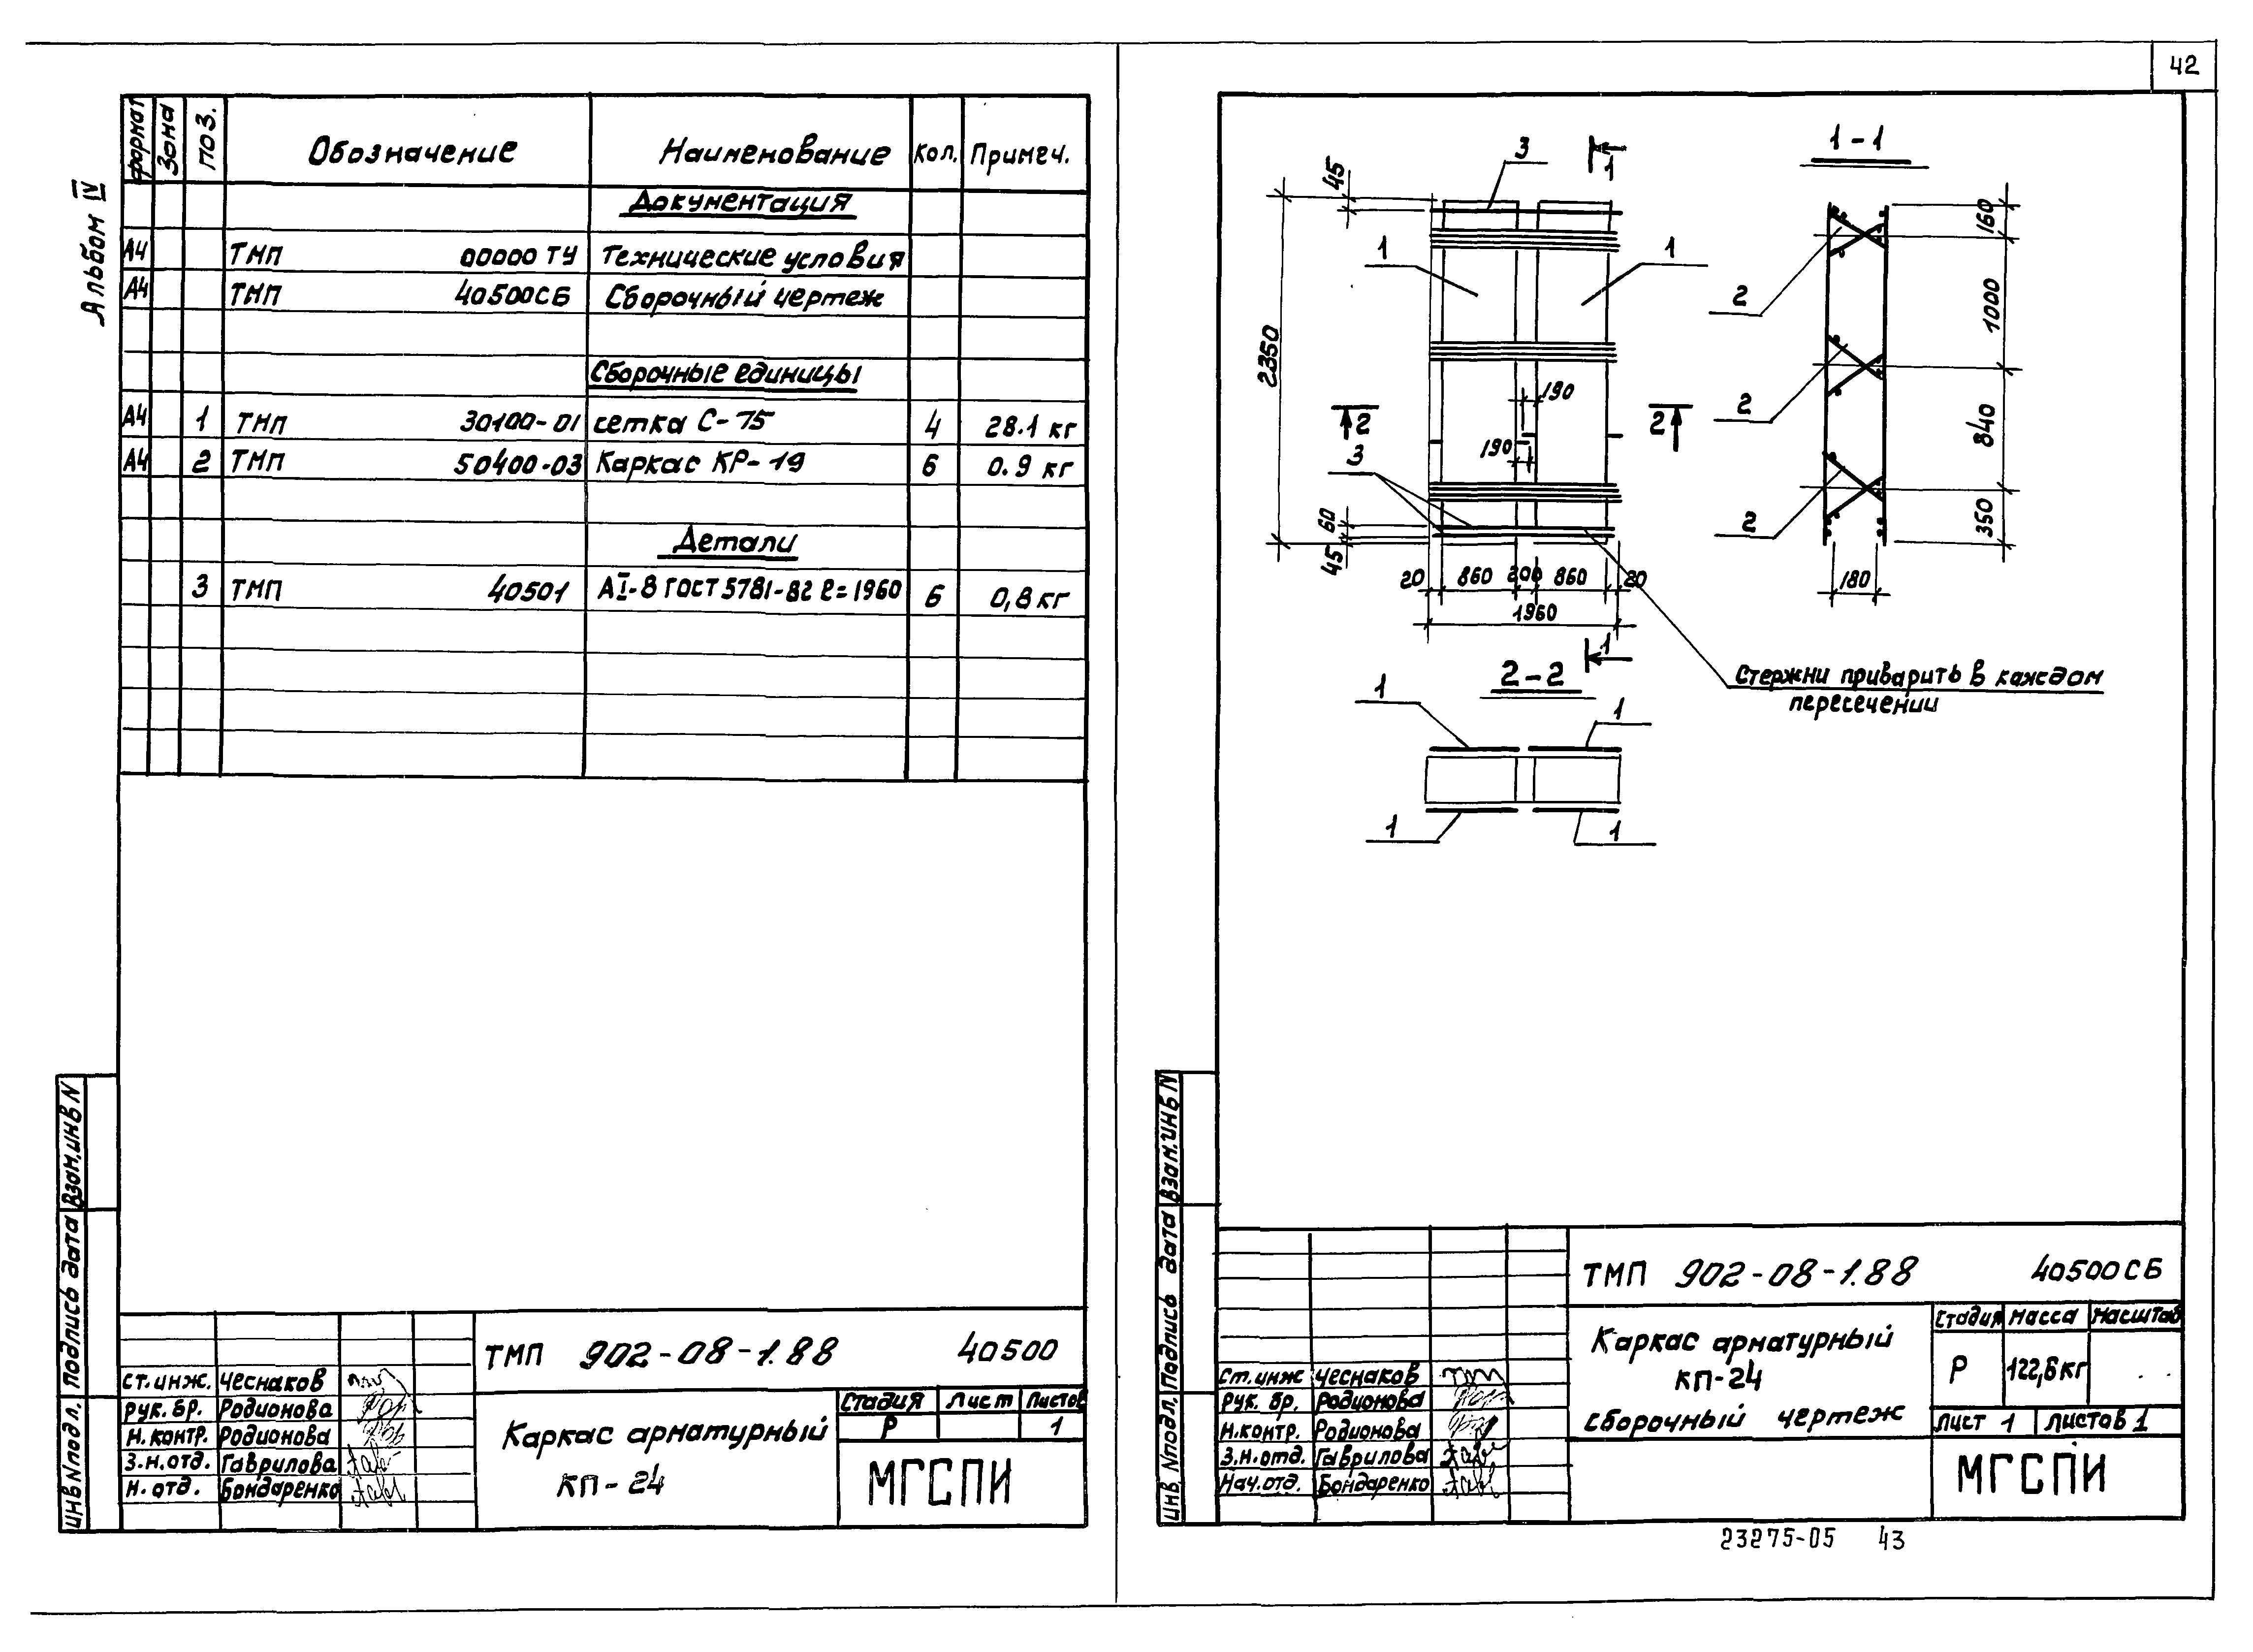 42
Альбом IV
формат Зона поз. Обозначение Наименование Кол. Примеч.
Документация
А4 ТМП 00000 ТУ Технические условия
А4 ТМП 40500СБ Сборочный чертеж
Сборочные единицы
А4 1 ТМП 30100-01 сетка С-75 4 28.1 кг
А4 2 ТМП 50400-03 Каркас КР-19 6 0.9 кг
Детали
3 ТМП 40501 АI-8 ГОСТ 5781-82 ℓ=1960 6 0,8 кг
Взам.инв N
Подпись дата
Инв N подл.
ТМП 902-08-1.88 40500
Ст.инж. Чеснаков
Рук. бр. Родионова
Н.контр. Родионова
З.н.отд. Гаврилова
Н.отд. Бондаренко
Каркас арматурный
КП-24
Стадия Лист Листов
Р 1
МГСПИ
1-1
3
1
45
1
1
2350
190
2
2
190
3
60
45
20 860 200 860 20
1960
1
160
2
1000
2
840
2
350
180
Стержни приварить в каждом
пересечении
2-2
1
1
1
1
Взам.инв N
Подпись дата
Инв N подл.
ТМП 902-08-1.88 40500СБ
Ст.инж Чеснаков
Рук. бр. Родионова
Н.контр. Родионова
З.н.отд. Гаврилова
Нач.отд. Бондаренко
Каркас арматурный
КП-24
сборочный чертеж
Стадия Масса Масштаб
Р 122,6кг
Лист 1 Листов 1
МГСПИ
23275-05 43